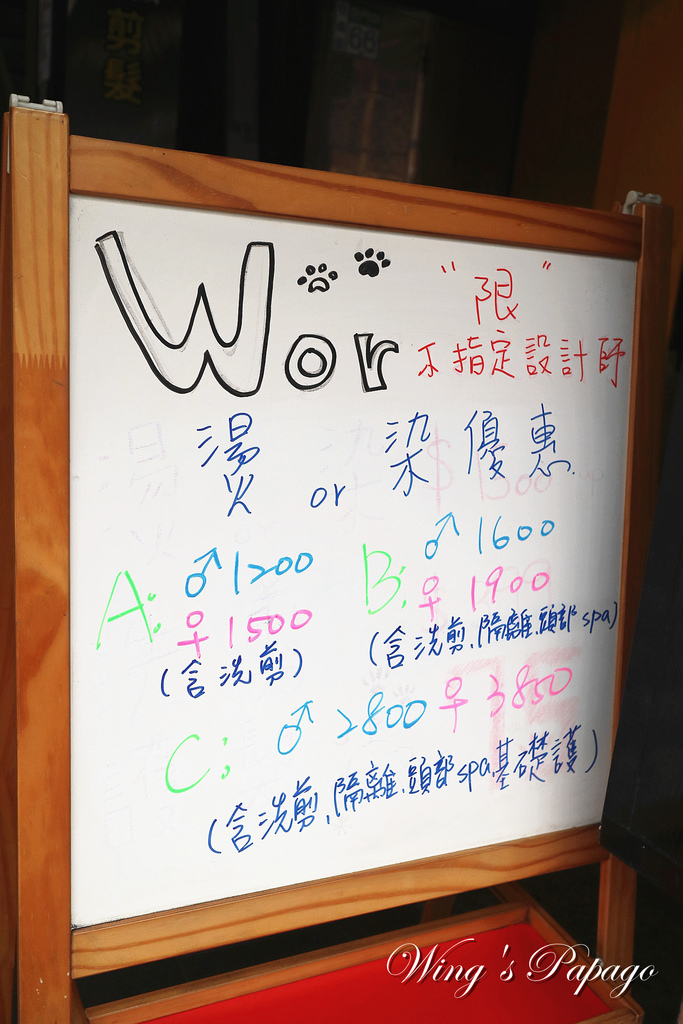 剪髮
66
Wor
"限"
不指定設計師
燙 or 染優惠
A: ♂1200
♀1500
(含洗剪)
B: ♂1600
♀1900
(含洗剪,隔離,頭部spa)
C: ♂2800 ♀3850
(含洗剪,隔離,頭部spa,基礎護)
Wing's Papago